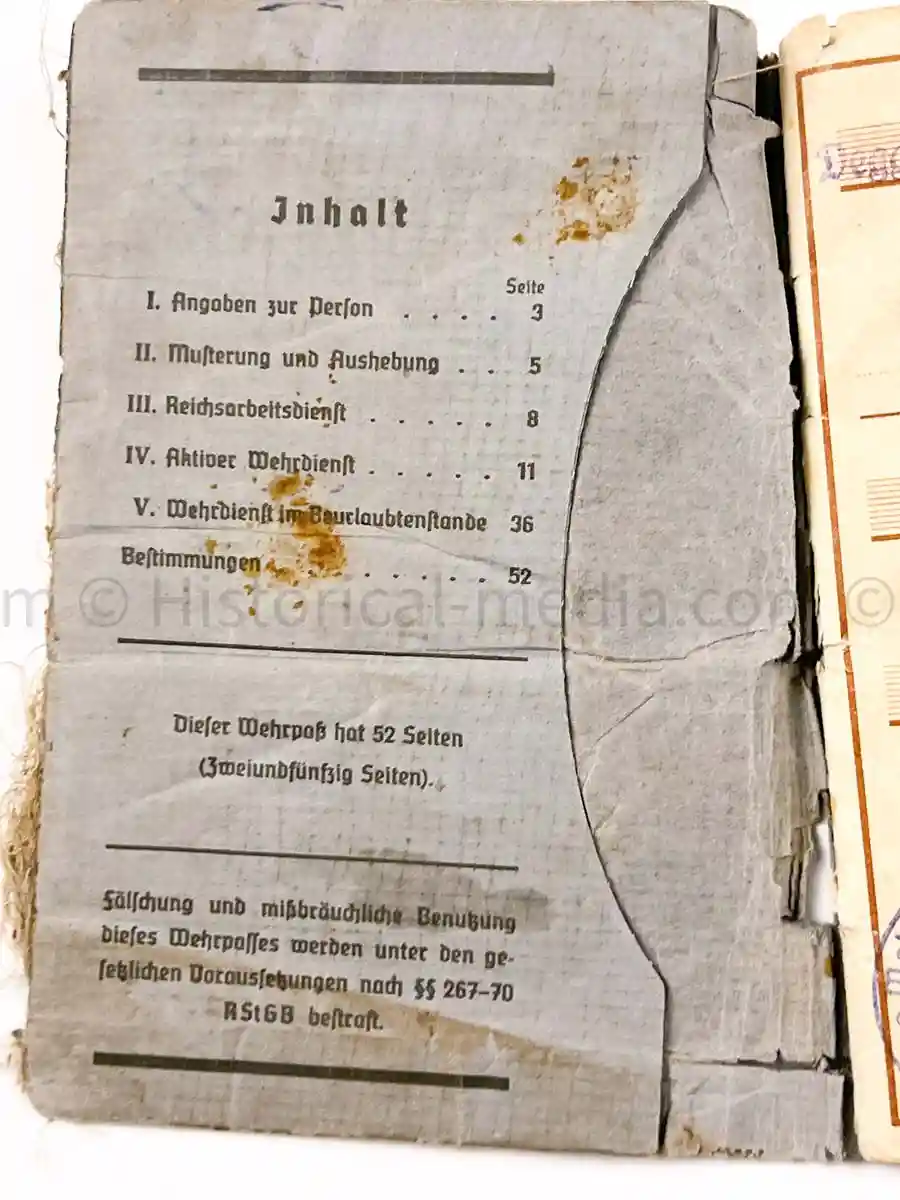 Inhalt
Seite
I. Angaben zur Person . . . . 3
II. Musterung und Aushebung . . 5
III. Reichsarbeitsdienst . . . . . 8
IV. Aktiver Wehrdienst . . . . . 11
V. Wehrdienst im Beurlaubtenstande 36
Bestimmungen . . . . . . . 52
m © Historical-media.com ©
Dieser Wehrpaß hat 52 Seiten
(Zweiundfünfzig Seiten).
Fälschung und mißbräuchliche Benutzung
dieses Wehrpasses werden unter den ge-
setzlichen Voraussetzungen nach §§ 267-70
RStGB bestraft.